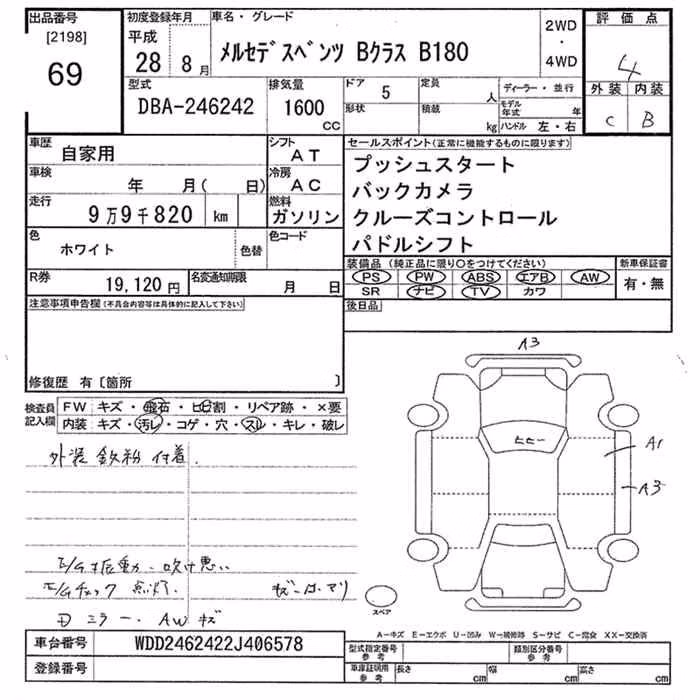 出品番号 初度登録年月 車名・グレード 2WD ・ 4WD 評価点
[2198] 69 平成 28年 8月 メルセデスベンツ Bクラス B180 4
型式 排気量 ドア 5 定員 人 ディーラー・並行 外装 内装
DBA-246242 1600 CC 形状 積載 kg モデル年式 年 ハンドル 左・右 C B
車歴 自家用 シフト AT セールスポイント(正常に機能するものに限ります)
車検 年 月( 日) 冷房 AC プッシュスタート
走行 9万9千820 km 燃料 ガソリン バックカメラ
クルーズコントロール
色 ホワイト 色替 色コード パドルシフト
R券 19,120円 名変通知期限 月 日 装備品(純正品に限り○をつけてください) 新車保証書
PS PW ABS エアB AW 有・無
SR ナビ TV カワ
注意事項申告欄(不具合内容等は具体的に記入して下さい) 後日品
修復歴 有〔箇所 〕
A3
検査員記入欄 FW キズ・飛石・ヒビ割・リペア跡・×要
内装 キズ・汚レ・コゲ・穴・スレ・キレ・破レ
ヒビー
A1
A3
外装 鉄粉 付着.
E/G振動・吹け悪い
E/Gチェック 点灯.
ミラー. AW キズ
スペア
A-キズ E-エクボ U-凹み W-補修跡 S-サビ C-腐食 XX-交換済
車台番号 WDD2462422J406578 型式指定番号 参考 類別区分番号 参考
登録番号 車庫証明用 参考 長さ cm 幅 cm 高さ cm